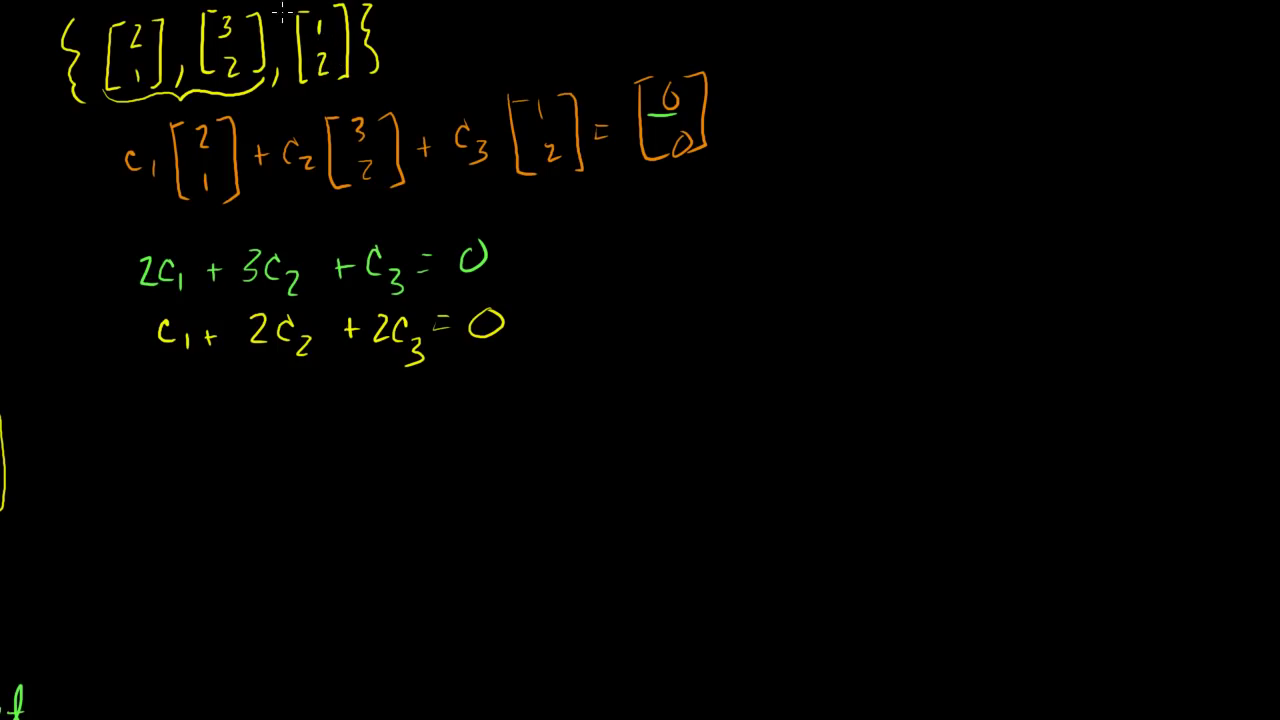 { [2 1], [3 2], [1 2] }
c1 [2 1] + c2 [3 2] + c3 [1 2] = [0 0]
2c1 + 3c2 + c3 = 0
c1 + 2c2 + 2c3 = 0